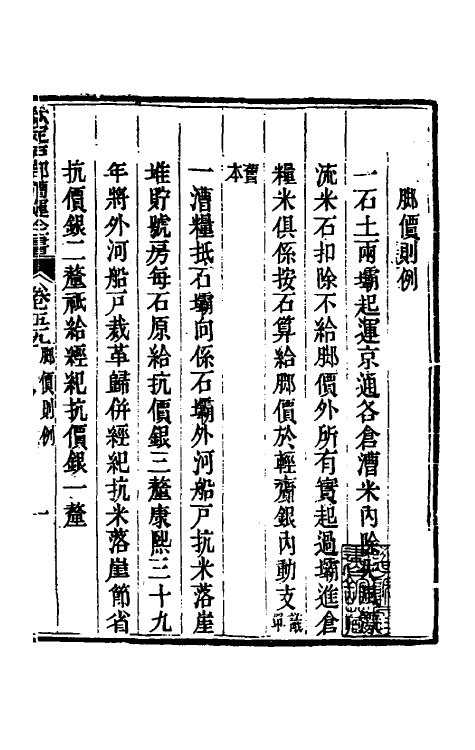 脚價則例
一石土兩壩起運京通各倉漕米內除
流米石扣除不給脚價外所有實起過壩進倉
糧米俱係按石算給脚價於輕齎銀內動支議單
舊本
一漕糧抵石壩向係石壩外河船戶抗米落崖
堆貯號房每石原給抗價銀三釐康熙三十九
年將外河船戶裁革歸併經紀抗米落崖節省
抗價銀二釐祇給經紀抗價銀一釐
欽定戶部漕運全書 卷五九 脚價則例 一